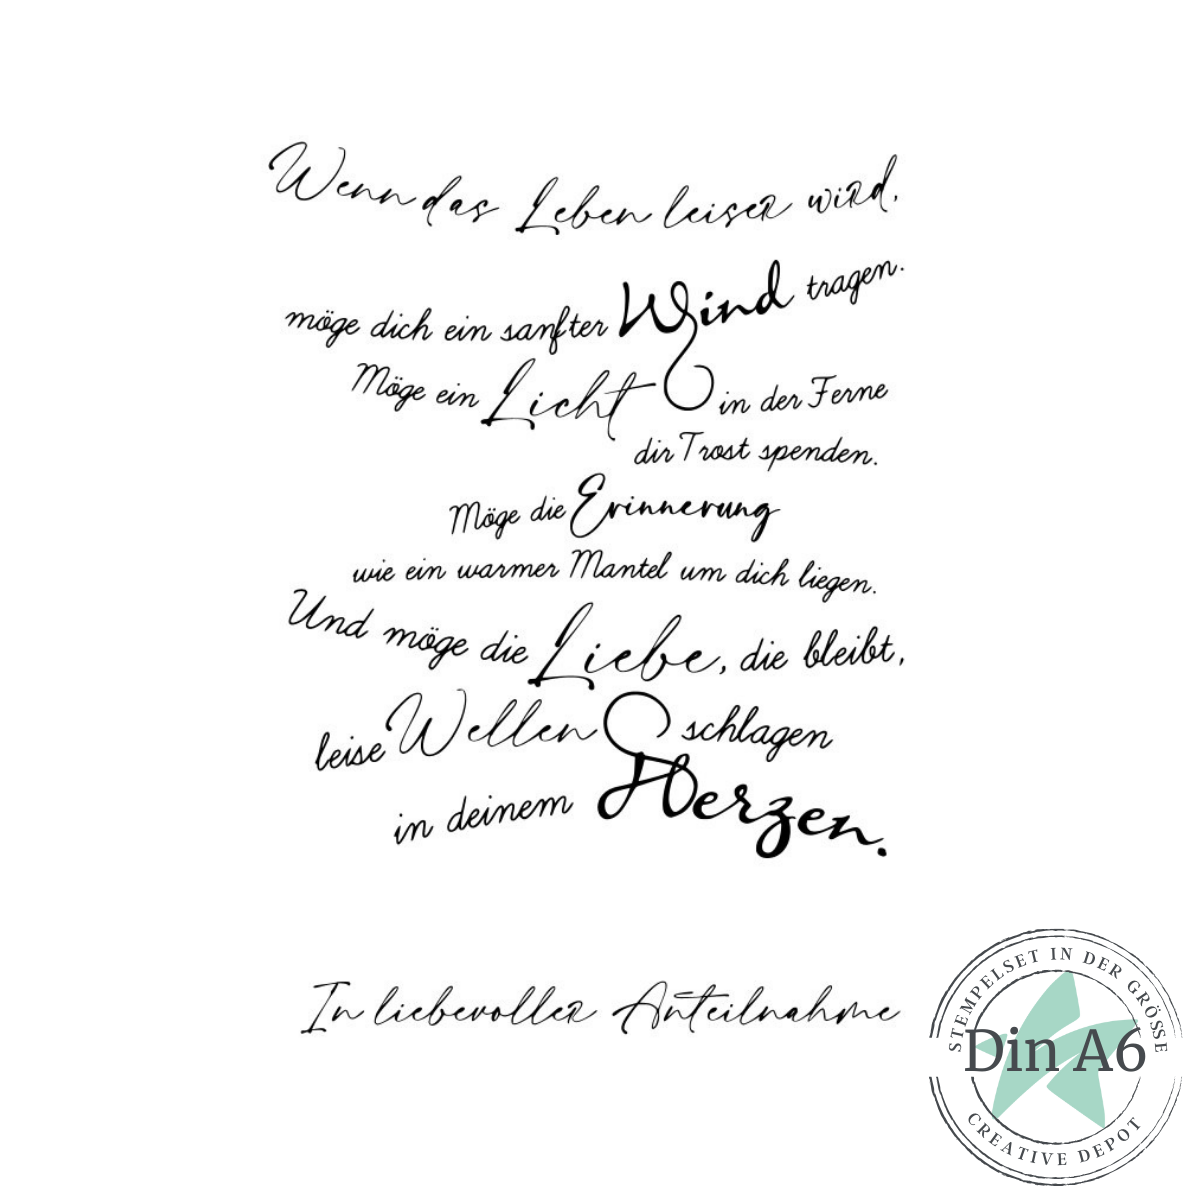 Wenn das Leben leiser wird,
möge dich ein sanfter Wind tragen.
Möge ein Licht in der Ferne
dir Trost spenden.
Möge die Erinnerung
wie ein warmer Mantel um dich liegen.
Und möge die Liebe, die bleibt,
leise Wellen schlagen
in deinem Herzen.
In liebevoller Anteilnahme
STEMPELSET IN DER GRÖSSE
Din A6
CREATIVE DEPOT